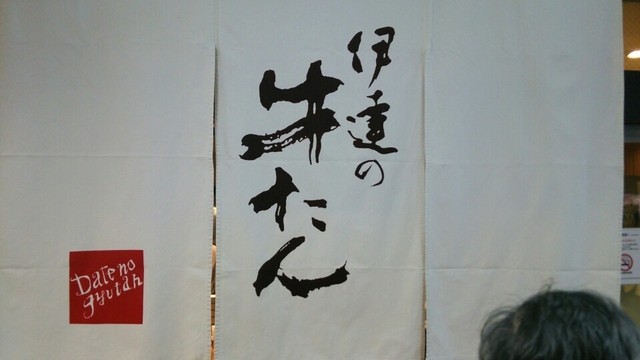 伊達の
牛たん
Date no
gyutan